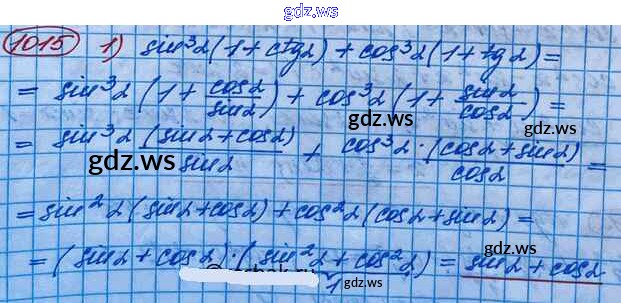 gdz.ws
1015 1) sin³α(1+ctgα)+cos³α(1+tgα)=
= sin³α(1+cosα/sinα)+cos³α(1+sinα/cosα)=
gdz.ws gdz.ws
= sin³α(sinα+cosα)/sinα + cos³α·(cosα+sinα)/cosα =
gdz.ws gdz.ws
= sin²α(sinα+cosα)+cos²α(cosα+sinα)=
gdz.ws
= (sinα+cosα)·(sin²α+cos²α)= sinα+cosα
1